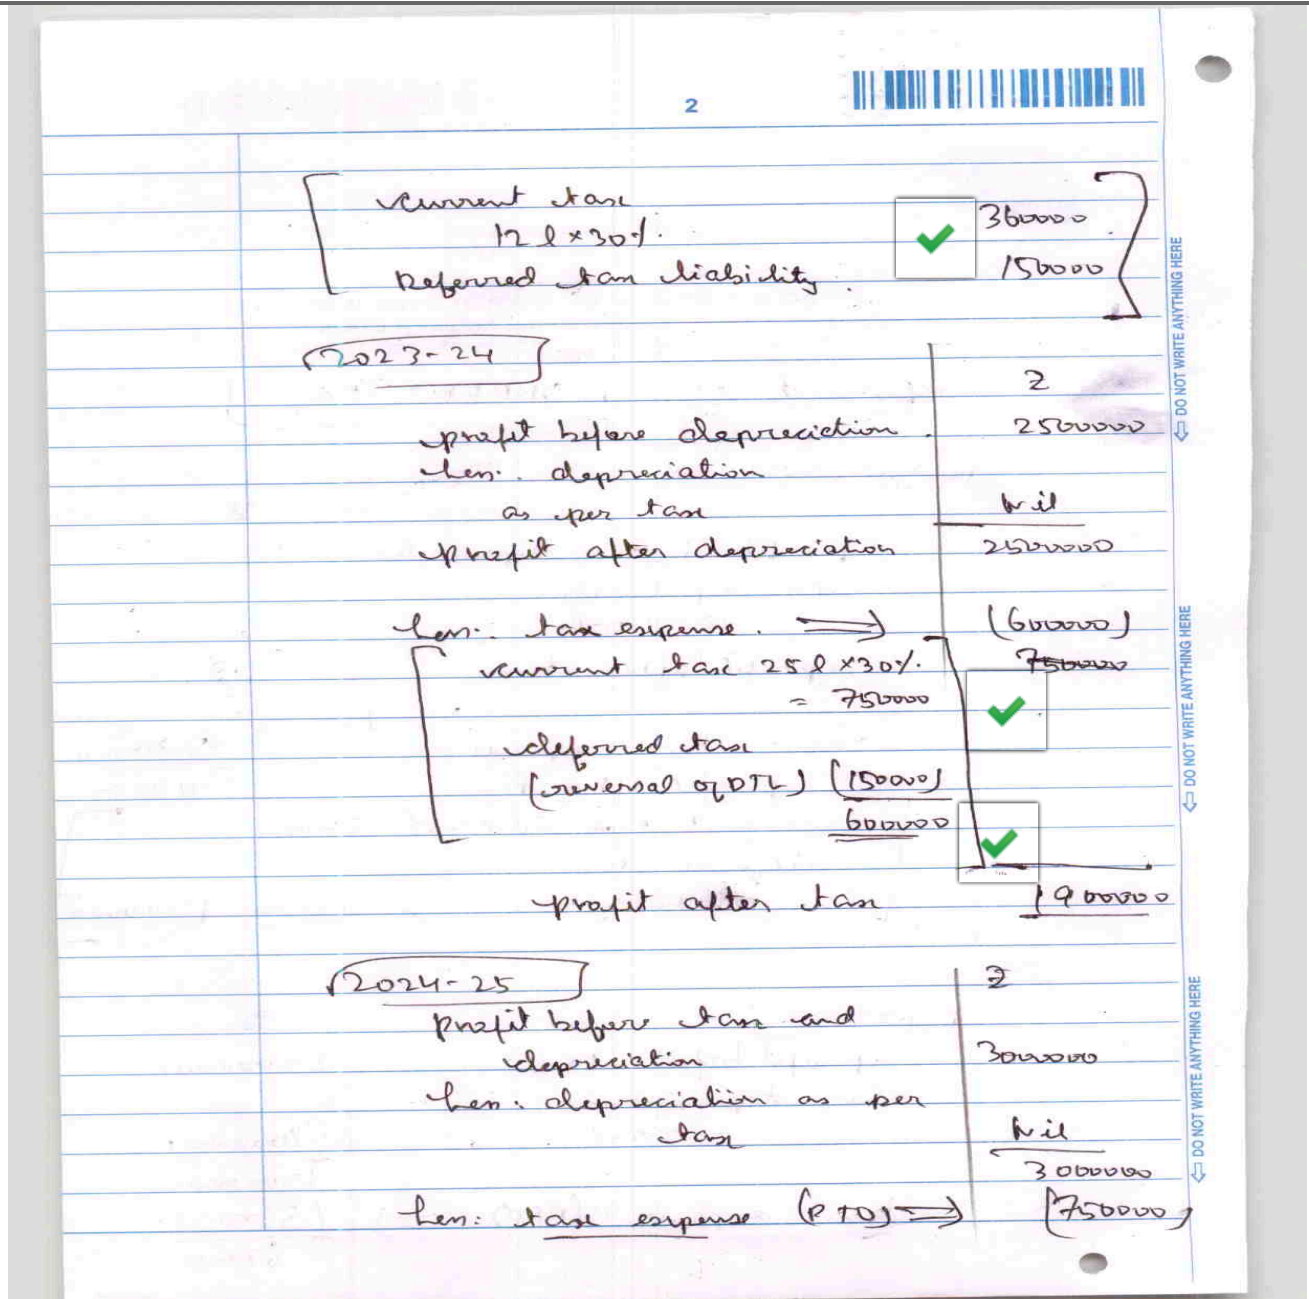 2
current tax
12 l × 30%. 360000
Deferred tax liability. 150000
2023-24
₹
profit before depreciation. 2500000
Less: depreciation
as per tax Nil
profit after depreciation 2500000
Less: tax expense. ⇒ (600000)
current tax 25 l × 30%. 750000
= 750000
deferred tax
(reversal of DTL) (150000)
600000
profit after tax 1900000
2024-25 ₹
profit before tax and
depreciation 3000000
Less: depreciation as per
tax Nil
3000000
Less: tax expense (PTO) ⇒ (750000)
⇦ DO NOT WRITE ANYTHING HERE
⇦ DO NOT WRITE ANYTHING HERE
⇦ DO NOT WRITE ANYTHING HERE